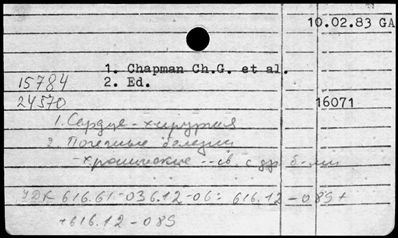 10.02.83 GA
1. Chapman Ch.G. et al.
15784 2. Ed.
24570 16071
1. Сердце - хирургия
2. Почечные болезни
- хронические - св. с др. б-ми
УДК 616.61-036.12-06: 616.12-089+
+616.12-089